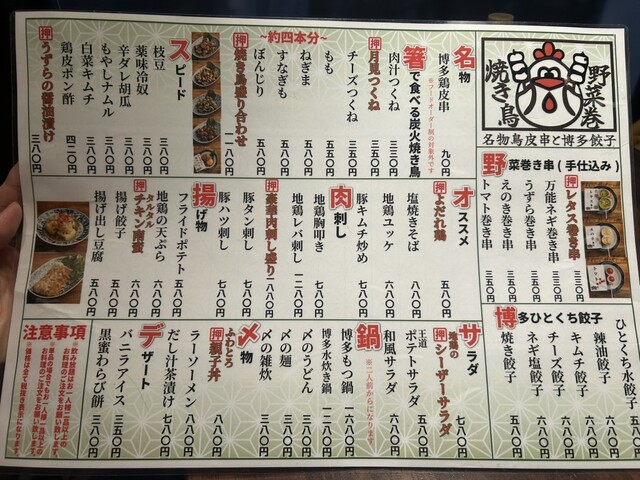 野菜巻き
焼き鳥
名物鳥皮串と博多餃子
名物
博多鶏皮串 九〇円
※フードオーダー制の対象外です
箸で食べる炭火焼き鳥
肉汁つくね 三三〇円
チーズつくね 三五〇円
押 月見つくね 三五〇円
~約四本分~
もも 五八〇円
ねぎま 五八〇円
すなぎも 五八〇円
ぼんじり 五八〇円
押 焼き鳥盛り合わせ 一一八〇円
スピード
枝豆 三八〇円
薬味冷奴 三八〇円
辛ダレ胡瓜 三八〇円
もやしナムル 三八〇円
白菜キムチ 三八〇円
鶏皮ポン酢 四二〇円
押 うずらの醤油漬け 三八〇円
野菜巻き串(手仕込み)
押 レタス巻き串 三三〇円
万能ネギ巻き串 三三〇円
うずら巻き串 三五〇円
えのき巻き串 三五〇円
トマト巻き串 三五〇円
オススメ
押 よだれ鶏 六八〇円
塩焼きそば 八八〇円
地鶏ユッケ 七八〇円
豚キムチ炒め 六八〇円
肉刺し
地鶏胸叩き 七八〇円
地鶏レバ刺し 一二八〇円
押 豪華肉刺し盛り 一八八〇円
豚タン刺し 七八〇円
豚ハツ刺し 七八〇円
揚げ物
フライドポテト 五八〇円
地鶏の天ぷら 六八〇円
押 タルタルチキン南蛮 六八〇円
揚げ餃子 五八〇円
揚げ出し豆腐 五八〇円
博多ひとくち餃子
ひとくち水餃子 五八〇円
辣油餃子 六八〇円
キムチ餃子 六八〇円
チーズ餃子 六八〇円
ネギ塩餃子 六八〇円
焼き餃子 五八〇円
サラダ
押 地鶏のシーザーサラダ 七八〇円
王道ポテトサラダ 五八〇円
和風サラダ 六八〇円
鍋
※二人前からになります
博多もつ鍋 一六八〇円
博多水炊き鍋 一二八〇円
〆物
〆のうどん 三八〇円
〆の麺 三八〇円
〆の雑炊 三八〇円
押 ふわとろ親子丼 八八〇円
ラーソーメン 八八〇円
だし汁茶漬け 七八〇円
デザート
バニラアイス 三五〇円
黒蜜わらび餅 三八〇円
注意事項